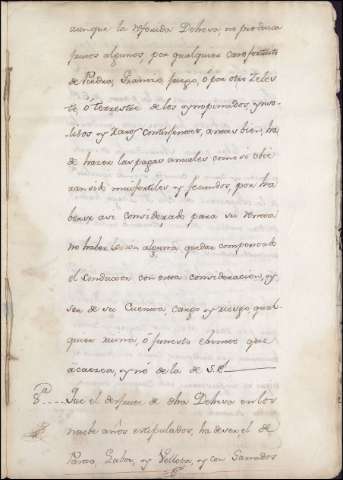 aunque la referida Dehesa, no produzca
frutos algunos, por qualquier caso fortuito
de Piedra, Granizo, fuego, ó por otro Celes
te, ó terrestre de los ynopinados, ynso
litos, y raros contingentes, antes bien, ha
de hazer las pagas anuales como si obie
ran sido mui fertiles, y fecundos, por ha
berse asi considerado para su
no haber alguna quedar compensado
el conductor con esta consideracion, y
ser de su Cuenta, cargo, y riesgo, qual
quier ruina, ó funesto que
acaezca, y nó de la de S.E.
8ª Que el disfrute de dha Dehesa en los
nuebe años estipulados, ha de ser el de
Pasto, Labor, y Vellota, y con Ganados